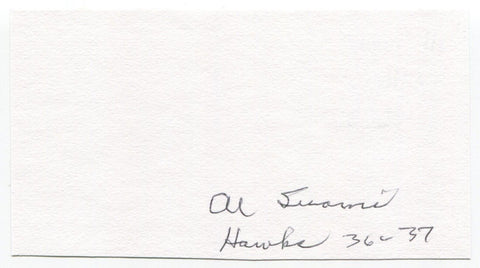 Al Suomi
Hawks 36-37